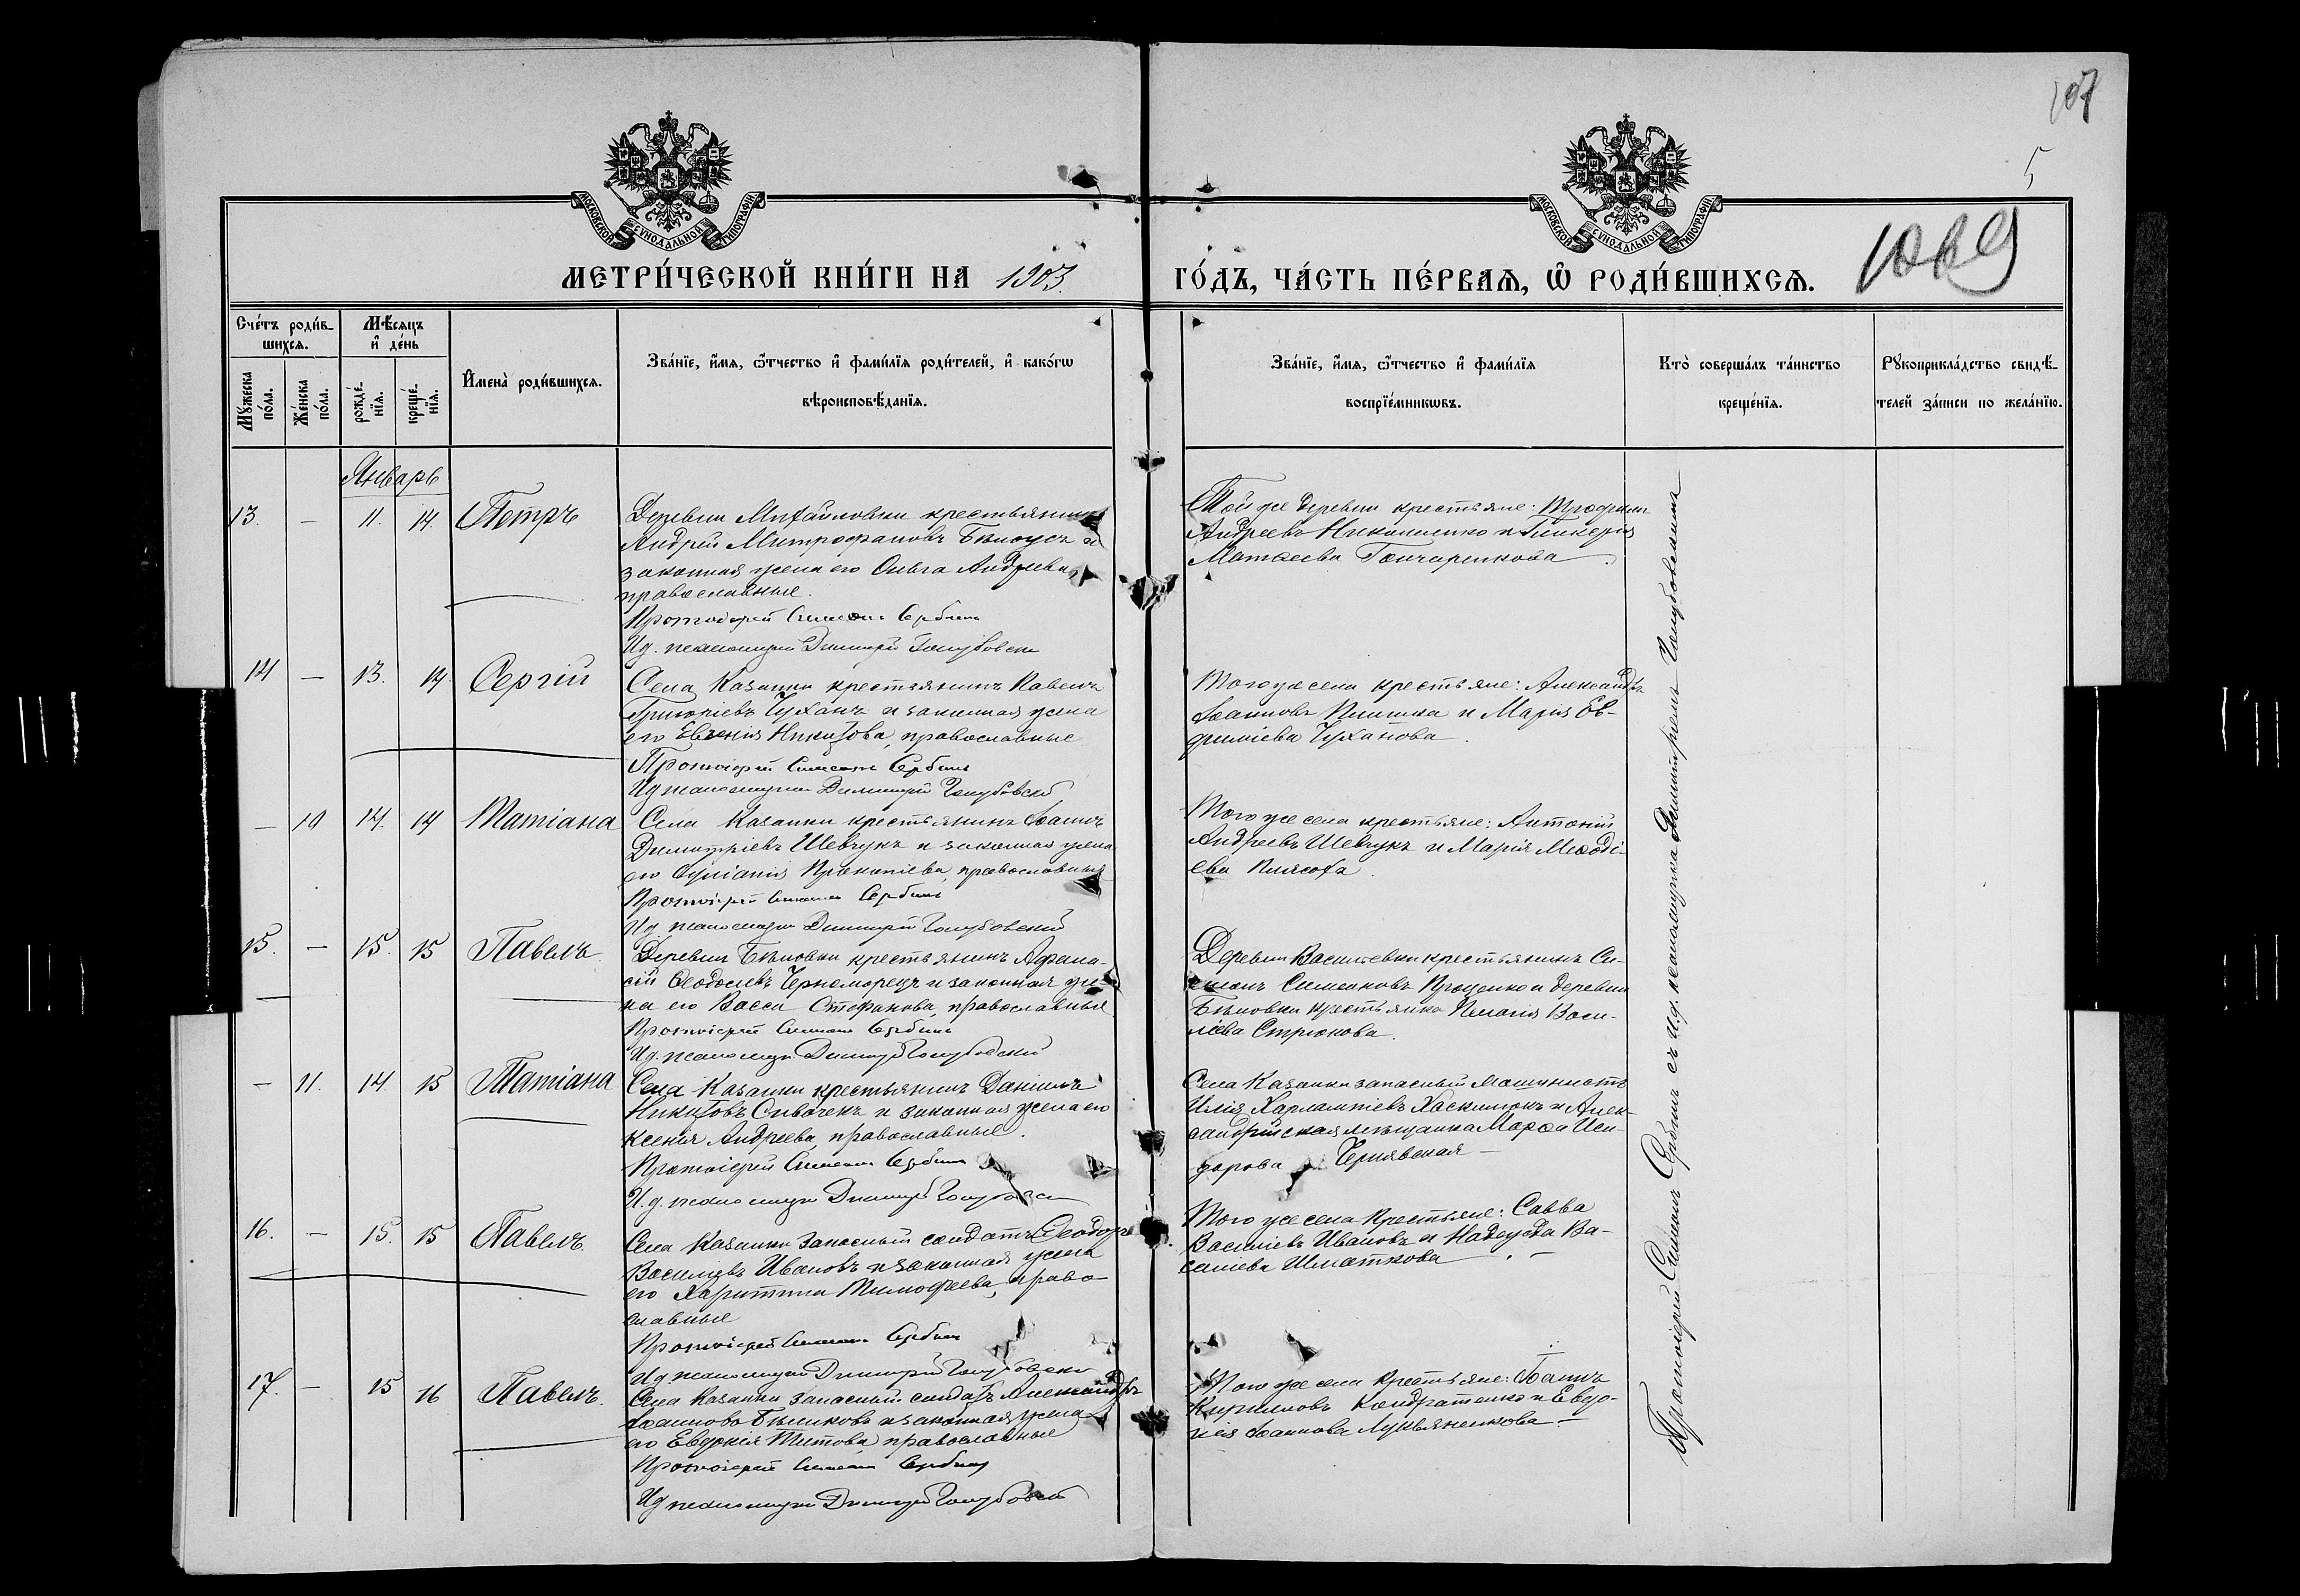 107
5
МОСКОВСКОЙ СѴНОДАЛЬНОЙ ТИПОГРАФІИ
МОСКОВСКОЙ СѴНОДАЛЬНОЙ ТИПОГРАФІИ
МЕТРИ́ЧЕСКОЙ КНИ́ГИ НА 1903.
ГО́ДЪ, ЧА́СТЬ ПЕ́РВАѦ, Ѡ҆ РОДИ́ВШИХСѦ.
1069
Сче́тъ роди́в-
шихсѧ.
Мѣ́сѧцъ
и҆ де́нь
Мꙋ́жеска
по́ла.
Же́нска
по́ла.
рожде́-
нїѧ.
креще́-
нїѧ.
И҆мена̀ роди́вшихсѧ.
Зва́нїе, и҆́мѧ, ѻ҆́тчество и҆ фами́лїѧ роди́телей, и҆ како́гѡ
вѣроисповѣ́данїѧ.
Зва́нїе, и҆́мѧ, ѻ҆́тчество и҆ фами́лїѧ
воспрїе́мникѡвъ.
Кто̀ соверша́лъ та́инство
креще́нїѧ.
Рꙋкоприкла́дство свидѣ́-
телей за́писи по жела́нїю.
Январь
13. — 11. 14. Петръ
Деревни Михайловки крестьянинъ
Андрей Митрофановъ Бѣлоусъ и
законная жена его Ольга Андреева,
православные.
Протоіерей Симеонъ Сербинъ
И.д. псаломщика Димитрій Голубовскій
Той же деревни крестьяне: Трофимъ
Андреевъ Николаенко и Гликерія
Матѳеева Гончаренкова
14 — 13. 14 Сергій
Села Казанки крестьянинъ Павелъ
Григоріевъ Чуханъ и законная жена
его Евгенія Никитова, православные
Протоіерей Симеонъ Сербинъ
И д псаломщика Димитрій Голубовскій
Того же села крестьяне: Александръ
Іоанновъ Плишка и Марія Ев-
фиміева Чуханова.
— 10 14. 14 Татіана
Села Казанки крестьянинъ Іоаннъ
Димитріевъ Шевчукъ и законная жена
его Іуліанія Прокопіева, православные
Протоіерей Симеонъ Сербинъ
И.д. псаломщика Димитрій Голубовскій
Того же села крестьяне: Антоній
Андреевъ Шевчукъ и Марія Меѳоді-
ева Плясоха.
15. — 15. 15 Павелъ
Деревни Бѣловки крестьянинъ Афана-
сій Ѳеодосіевъ Черноморецъ и законная же-
на его Васса Стефанова, православные
Протоіерей Симеонъ Сербинъ
И.д. псаломщика Димитрій Голубовскій
Деревни Васильевки крестьянинъ Си-
меонъ Симеоновъ Проценко и деревни
Бѣловки крестьянка Пелагія Васи-
ліева Стрюкова.
— 11. 14. 15 Татіана
Села Казанки крестьянинъ Даніилъ
Никитовъ Сивачекъ и законная жена его
Ксенія Андреева, православные.
Протоіерей Симеонъ Сербинъ
И.д. псаломщика Димитрій Голубовскій
Села Казанки запасный машинистъ
Илія Харлампіевъ Хаскилюкъ и Алек-
сандрійская мѣщанка Марѳа Иси-
дорова Чернявская —
16. — 15. 15 Павелъ.
Села Казанки запасный солдатъ Ѳеодоръ
Василіевъ Ивановъ и законная жена
его Харитина Тимофеева, право-
славные
Протоіерей Симеонъ Сербинъ
И д псаломщика Димитрій Голубовскій
Того же села крестьяне: Савва
Василіевъ Ивановъ и Надежда Ва-
силіева Шматкова
17. — 15 16 Павелъ.
Села Казанки запасный солдатъ Александръ
Іоанновъ Бѣликовъ и законная жена
его Евдокія Титова, православные
Протоіерей Симеонъ Сербинъ
И д псаломщика Димитрій Голубовскій
Того же села крестьяне: Іоаннъ
Кирилловъ Кондратенко и Евдо-
кія Іоаннова Лукьяненкова —
Протоіерей Симеонъ Сербинъ съ и.д. псаломщика Димитріемъ Голубовскимъ